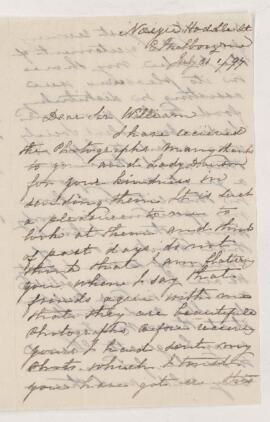 Hoddle St
E Melbourne
July 31 1/97
Dear Sir William
I have received
the Photographs many thanks
to you and Lady
for your kindness in
sending them It is such
a pleasure to me to
look at them and think
of past days do not
think that I am flattering
you when I say that
friends agree with me
that they are beautiful
Photographs before receiving
yours I had sent my
Photo which I trust
you have got as